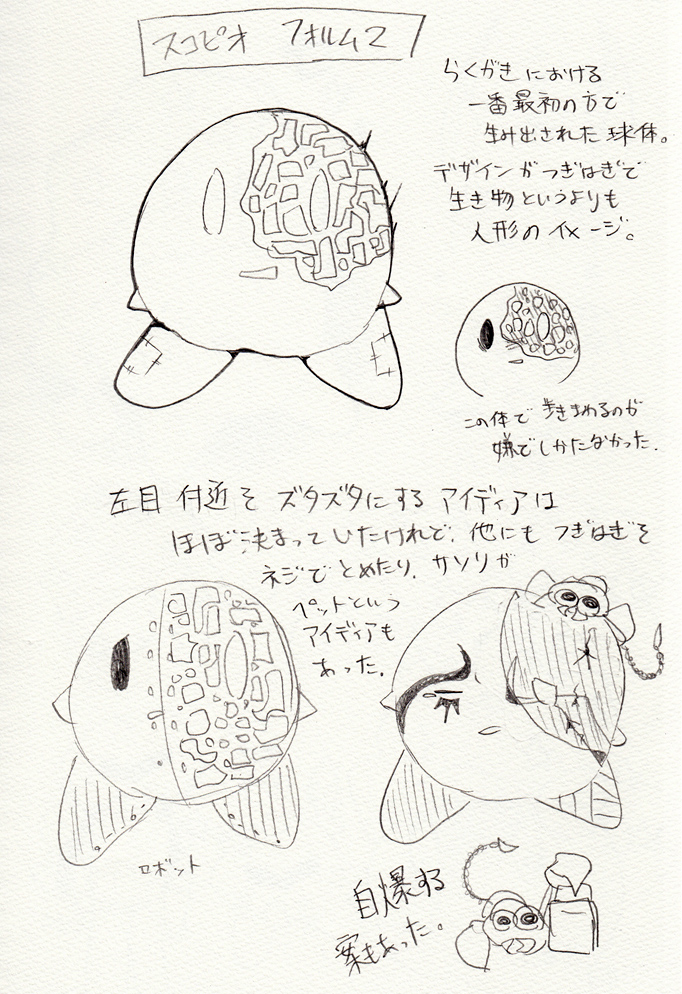 スコピオ フォルム2
らくがきにおける
一番最初の方で
生み出された球体。
デザインがつぎはぎで
生き物というよりも
人形のイメージ。
この体で歩きまわるのが
嫌でしかたなかった.
左目付近をズタズタにするアイディアは
ほぼ決まっていたけれど、他にもつぎはぎを
ネジでとめたり、サソリが
ペットという
アイディアも
あった.
ロボット
自爆する
案もあった。